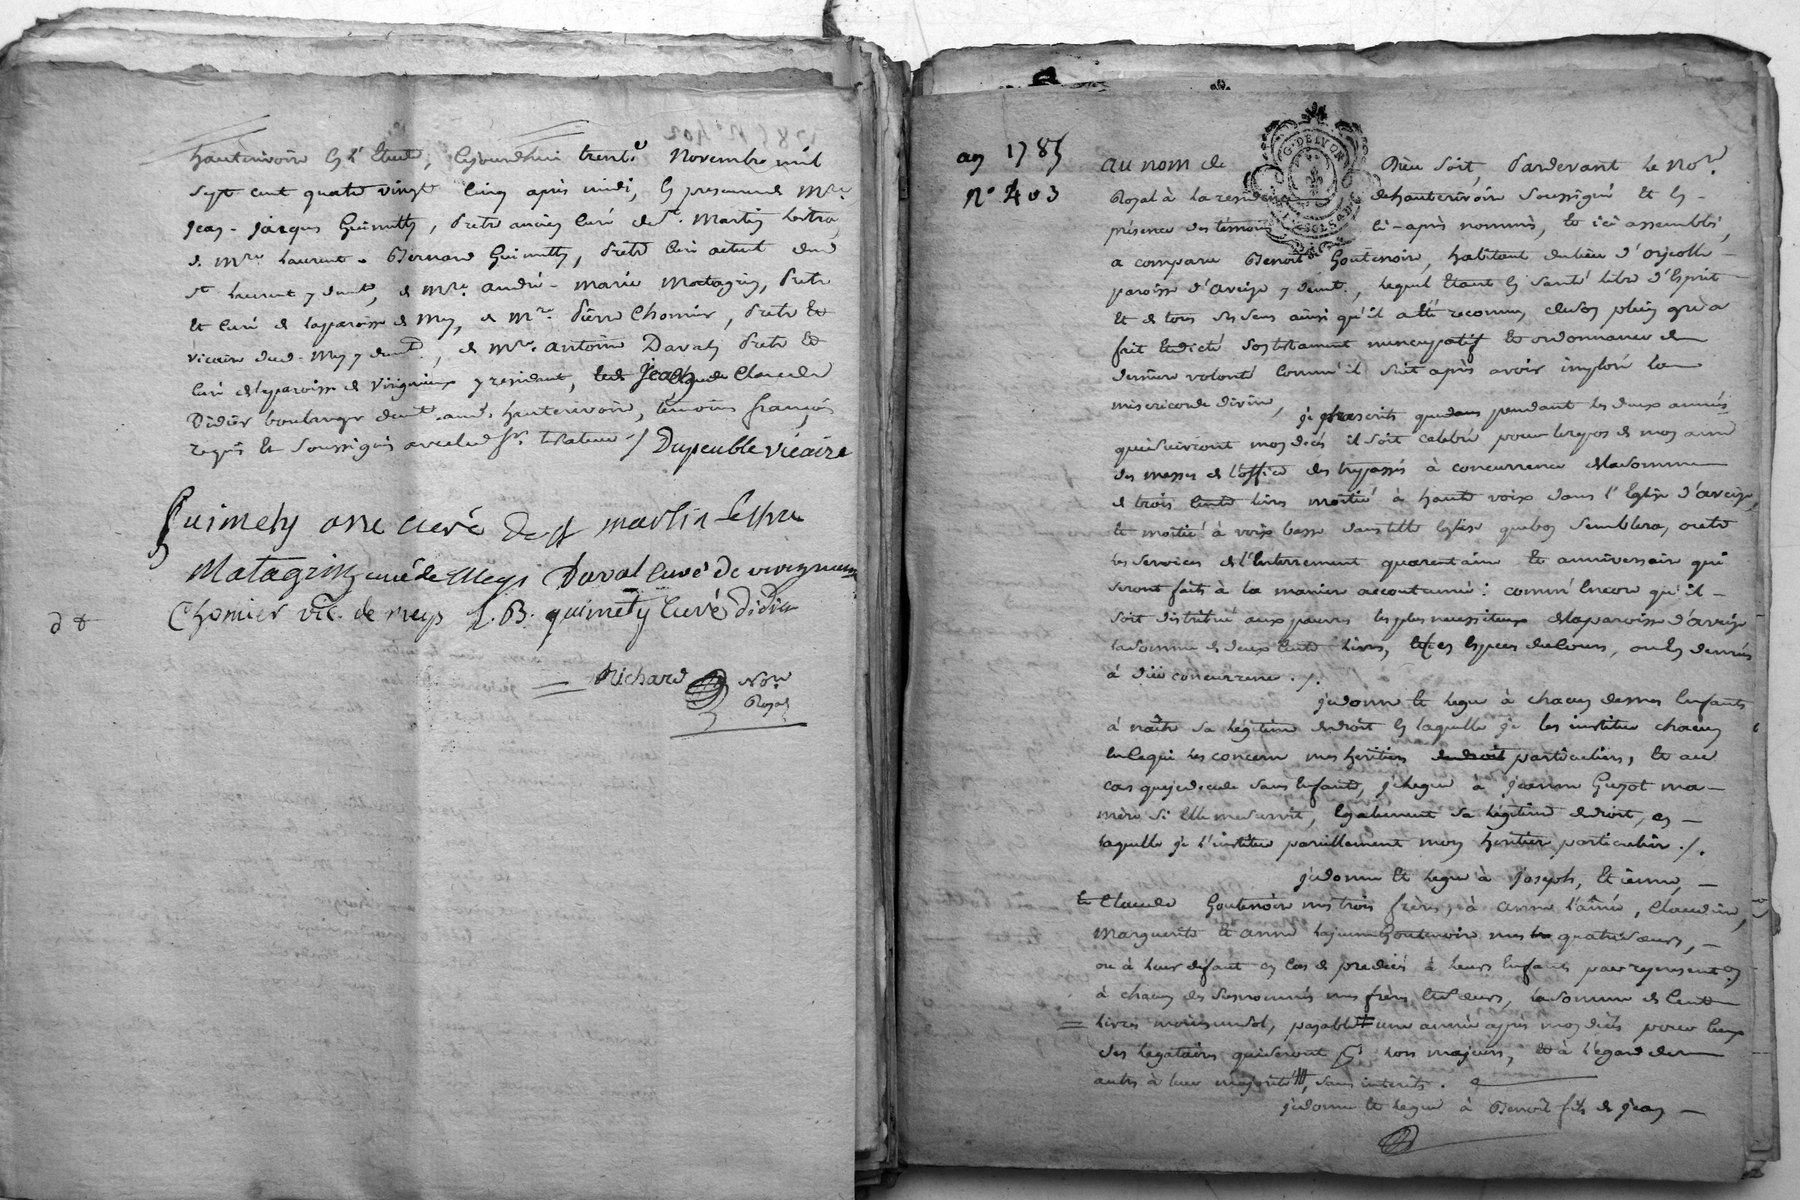 hauterivoire En l'Etude, Cejourdhui trente Novembre mil
Sept cent quatre vingt Cinq après midi, En presence de Mre
Jean-Jacques Guimetty, Pretre ancien Curé de St Martin
de Mre Laurent-Bernard Guimetty, Pretre Curé actuel dud
St Laurent y demt, de Mre André-Marie Matagrin, Pretre
Et Curé de la paroisse de Meys, de Mre Pierre Chomier, Pretre Et
vicaire dud. Meys y demt, de Mre Antoine Daval Pretre Et
Curé de la paroisse de Virignieux y resident, Claude
Didier boulanger demt aud. hauterivoire, temoins français
requis Et Soussignés avec led Sr. testateur ./ Dupeuble vicaire
Guimety curé De st martin
Matagrin curé de Meys Daval Curé De virigneux
Chomier vic. de meys L. B. guimety Curé Didier
Richard Nore
Royal
an 1785
N° 403
au nom de Dieu Soit, Pardevant Le Nore
Royal à La residence de hauterivoire Soussigné Et En
présence des témoins ci-après nommés, Et ici assemblés,
a comparu Benoit Goutenoire, habitant du lieu d'orjolle
paroisse d'aveize y demt., Lequel Etant En Santé libre d'Esprit
Et de tous Ses Sens ainsi qu'il a été reconnu, de Son plein gré a
fait Et dicté Son testament nuncupatif Et ordonnance de
dernière volonté Comm'il Suit après avoir imploré La
misericorde divine,
je prescrits que dans pendant les deux années
qui Suivront mon décès il Soit Celebré pour Le repos de mon ame
des messes de l'office des trepassés à concurrence de la Somme
de trois Cents Livres moitié à haute voix dans l'Eglise d'aveize,
Et moitié à voix basse dans telle Eglise que bon Semblera, outre
Les Services de l'Enterrement quarantaine Et anniversaire qui
Seront faits à La manière accoutumée : comm'Encore qu'il
Soit distribué aux pauvres les plus necessiteux de la paroisse d'aveize
La Somme de deux Cents Livres, En Especes du Cours, ou En denrées
à düe concurrence ./.
je donne Et Legue à chacun de mes Enfants
à naître Sa Légitime de droit En laquelle je Les institue chacun
En Ce qui Les concerne mes heritiers particuliers, Et au
Cas que je decede Sans Enfants, je Legue à Jeanne Guyot ma
mère Si Elle me Survit, Egalement Sa Légitime de droit, en
Laquelle je L'institue pareillement mon heritier particulier ./.
je donne Et Legue à Joseph, Etienne,
Et Claude Goutenoire mes trois frères, à anne L'aînée, Claudine,
Marguerite Et anne La jeune Goutenoire mes quatre Sœurs,
ou à Leur défaut en Cas de predecès à Leurs Enfants par representaon
à chacun des Susnommés mes frères Et Sœurs, La Somme de Cent
Livres moins un Sol, payable une année après mon décès pour Ceux
des Legataires qui Seront Lors majeurs, Et à L'egard des
autres à Leur majorité, Sans interêts.
je donne Et Legue à Benoit fils de Jean